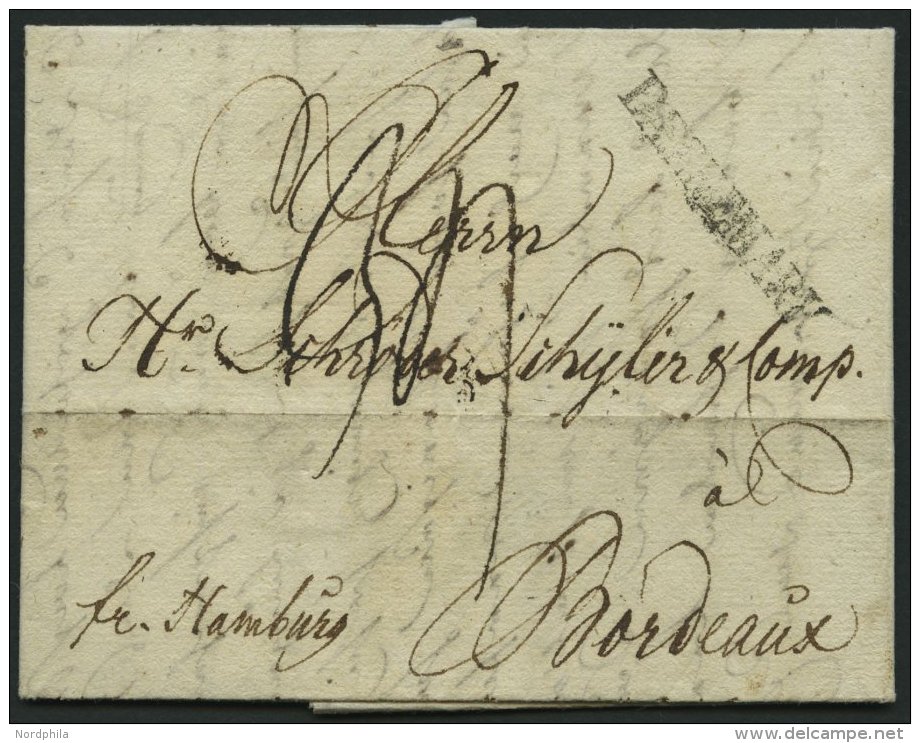 DANNEMARK
Herrn
Hr. Schröder, Schÿler & Comp.
à
Bordeaux
fr. Hamburg
Nordphila
delcampe.net